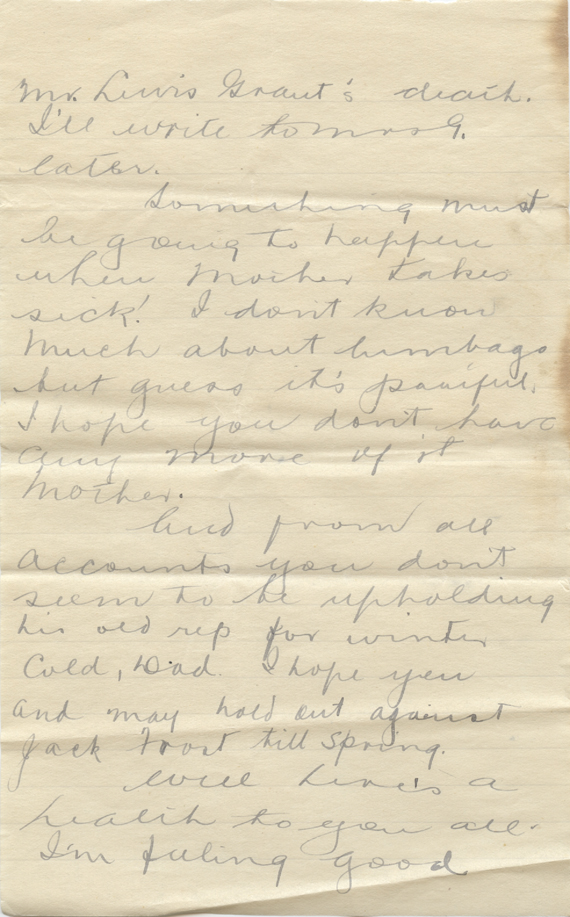 Mr. Lewis Grant's death.
I'll write to Mrs G.
later.
Something must
be going to happen
when Mother takes
sick! I don't know
much about lumbago
but guess it's painful.
I hope you don't have
any more of it
Mother.
And from all
accounts you don't
seem to be upholding
his old rep for winter
Cold, Dad. I hope you
and may hold out against
Jack Frost till Spring.
Well here's a
health to you all.
I'm feeling good